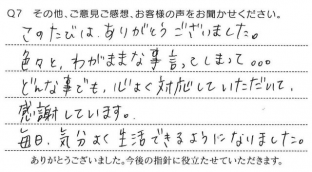 Q7 その他、ご意見ご感想、お客様の声をお聞かせください。
このたびは、ありがとうございました。
色々と、わがままな事言ってしまって。。。
どんな事でも、心よく対応していただいて、
感謝しています。
毎日、気分よく生活できるようになりました。
ありがとうございました。今後の指針に役立たせていただきます。